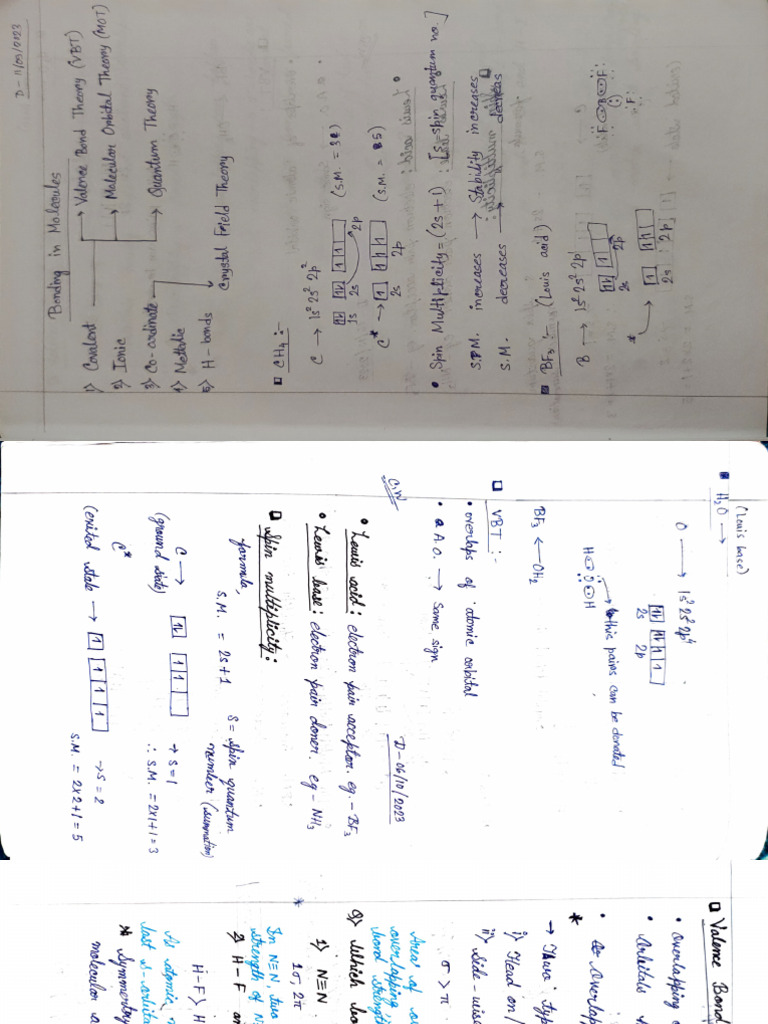 D-11/09/2023
Bonding in Molecules
1) Covalent → Valence Bond Theory (VBT)
→ Molecular Orbital Theory (MOT)
2) Ionic
3) Co-ordinate → Quantum Theory
4) Metallic
5) H-bonds Crystal Field Theory
CH4 :-
C → 1s² 2s² 2p²
1s 2s 2p
(S.M. = 3)
C* →
2s 2p
(S.M. = 5)
• Spin Multiplicity = (2s+1) : [s = spin quantum no.]
S.PM. increases → Stability increases
S.M. decreases → decreas
BF3 :- (Louis acid)
B → 1s² 2s² 2p¹
2s 2p
*
2s 2p
F B F
F
H2O → (Louis base)
O → 1s² 2s² 2p⁴
2s 2p
H O H
this pairs can be donated
BF3 ← OH2
VBT :-
• overlaps of atomic orbital
• A.O. → same sign
C.W D-06/10/2023
• Lewis acid : electron pair acceptor. eg.- BF3
• Lewis base : electron pair doner. eg - NH3
Spin multiplicity :
formula,
S.M. = 2s+1 S = spin quantum
number (summation)
C →
(ground state)
→ S=1
∴ S.M. = 2x1+1=3
C*
(exited state → → S=2
S.M. = 2x2+1=5
Valence Bond
• overlapping
• Orbitals
• overlap
*
→ Two typ
i) Head on /
ii) Side-wise
σ > π
Area of
overlapping
bond strength
Q) Which bo
1) N≡N
* 1σ, 2π
In N≡N, two
strength of N
2) H-F an
H-F > H
As atomic
last s-orbita
* Symmentry
molecular a